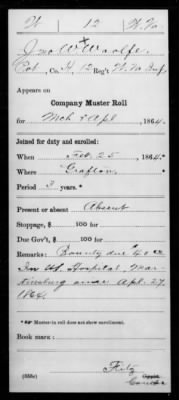 W | 12 | W. Va.
Jno W Woolfe
Pvt, Co. H, 12 Reg't W. Va. Inf.
Appears on
Company Muster Roll
for Mch & Apl, 1864.
Joined for duty and enrolled:
When Feb. 25, 1864.*
Where Grafton
Period 3 years.*
Present or absent Absent
Stoppage, $ 100 for
Due Gov't, $ 100 for
Remarks: Bounty due $40 00
In US. Hospital, Mar-
tinsburg since Apl. 27,
1864.
** Muster-in roll does not show enrollment.
Book mark:
Fitz
(858c) Copyist.